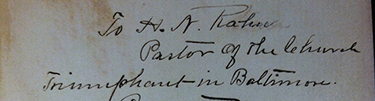 To H. N.
Pastor of the Church
Triumphant in Baltimore.